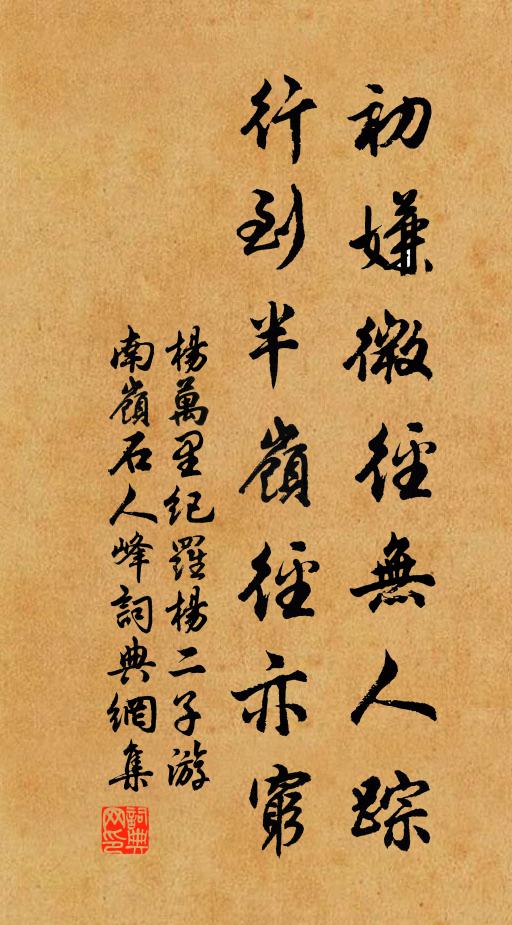 初嫌微徑無人踪
行到半嶺徑亦窮
楊萬里紀羅楊二子游
南嶺石人峰詞典網集
詞典网印